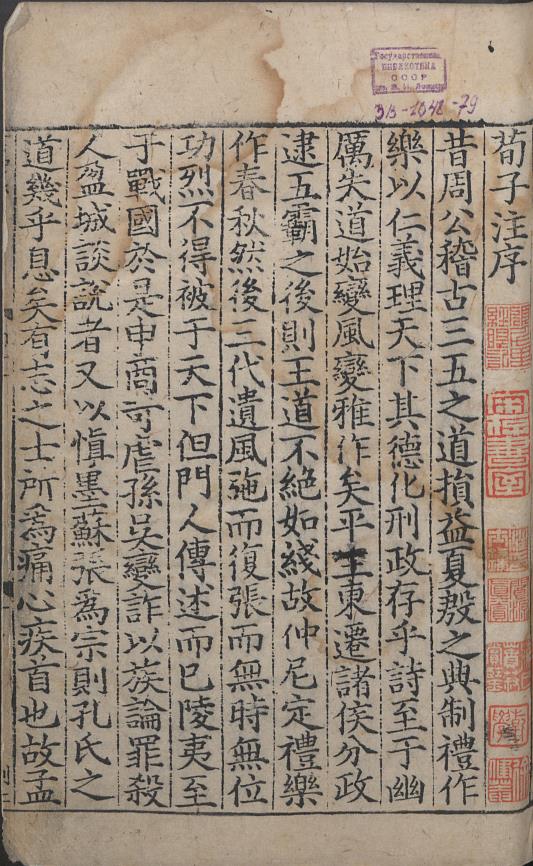 Государственная
БИБЛИОТЕКА
СССР
им. В. И. Ленина
3B-1042-79
荀子注序
昔周公稽古三五之道損益夏殷之典制禮作
樂以仁義理天下其德化刑政存乎詩至于幽
厲失道始變風變雅作矣平王東遷諸侯分政
逮五霸之後則王道不絶如綫故仲尼定禮樂
作春秋然後三代遺風弛而復張而無時無位
功烈不得被于天下但門人傳述而已陵夷至
于戰國於是申商苛虐孫吳變詐以族論罪殺
人盈城談說者又以慎墨蘇張爲宗則孔氏之
道幾乎息矣有志之士所爲痛心疾首也故孟